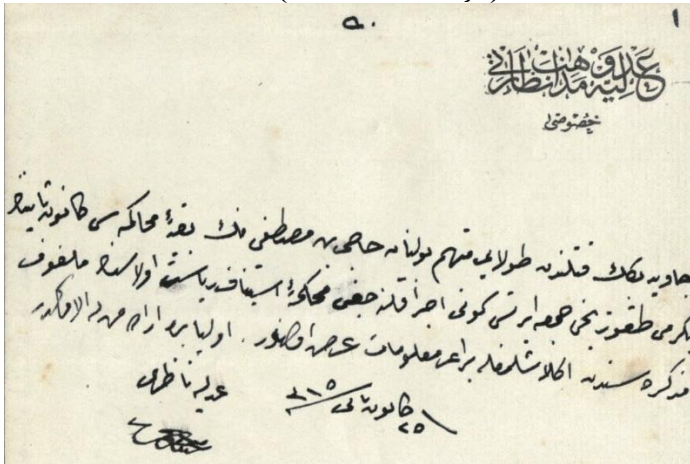 ١
عدليه و مذاهب نظارتی
خصوصی
جاويد بكك قتلندن طولايی متهم بولنان حاجی مصطفی نك بقيۀ محاكمه سی كانون ثانينك
يكرمی طقوزنجی جمعه ايرتسی كونی اجرا قلنه جغی محكمۀ استيناف رياستی اولاسنك ملفوف
تذكره سندن اكلاشلمغله برای معلومات عرض اولنور. اولبابده اراده من له الامركدر
٢٥ كانون ثانی ٣١٥
عدليه ناظری